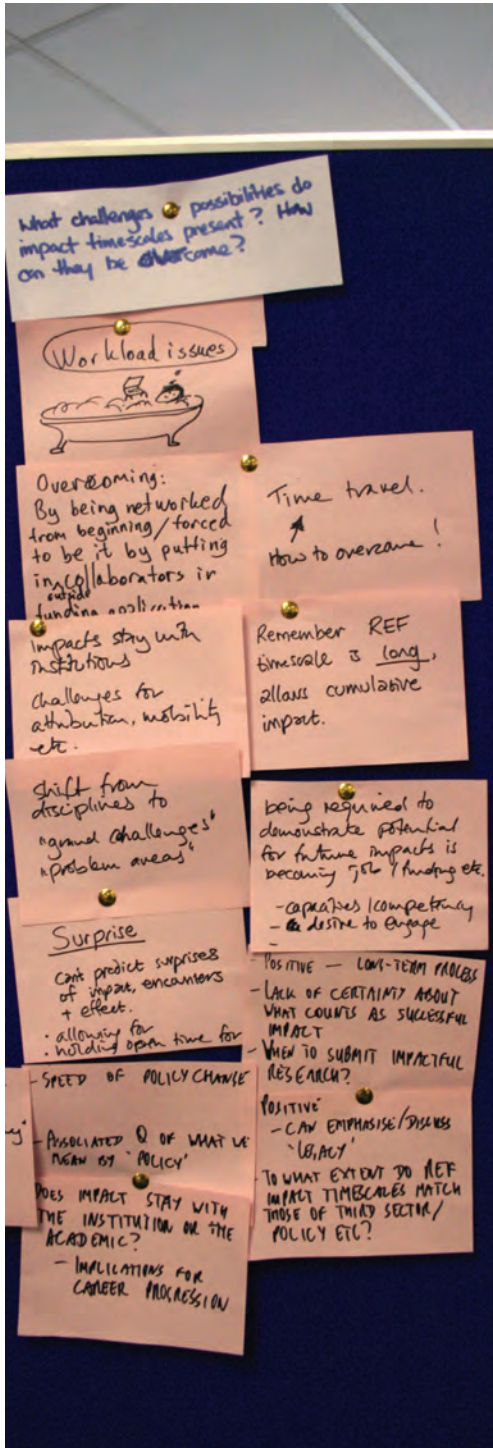 What challenges possibilities do
impact timescales present? How
can they be overcome?
Workload issues
Overcoming:
By being networked
from beginning/forced
to be it by putting
in collaborators in
outside
funding application
Time travel.
How to overcome!
Impacts stay with
institutions
challenges for
attribution, mobility
etc.
Remember REF
timescale is long,
allows cumulative
impact.
shift from
disciplines to
"grand challenges"
"problem areas"
being required to
demonstrate potential
for future impacts is
becoming job / funding etc.
- capacities/competency
- desire to engage
-
Surprise
Can't predict surprises
of impact, encounters
+ effect.
• allowing for
• holding open time for
- POSITIVE — LONG-TERM PROCESS
- LACK OF CERTAINTY ABOUT
WHAT COUNTS AS SUCCESSFUL
IMPACT
- WHEN TO SUBMIT IMPACTFUL
RESEARCH?
- SPEED OF POLICY CHANGE
- ASSOCIATED Q OF WHAT WE
MEAN BY 'POLICY'
POSITIVE
- CAN EMPHASISE/DISCUSS
'LEGACY'
- TO WHAT EXTENT DO REF
IMPACT TIMESCALES MATCH
THOSE OF THIRD SECTOR/
POLICY ETC?
DOES IMPACT STAY WITH
THE INSTITUTION OR THE
ACADEMIC?
- IMPLICATIONS FOR
CAREER PROGRESSION